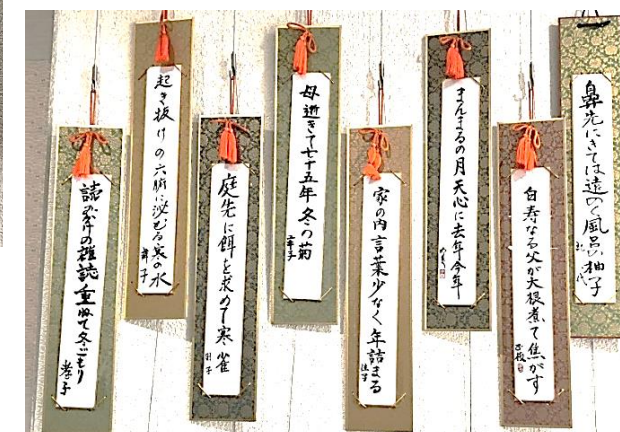 鼻先にきては遠のく風呂柚子
白寿なる父が大根煮て焦がす
まんまるの月天心に去年今年
家の内言葉少なく年詰まる
母逝きて七十五年冬の菊
庭先に餌を求めて寒雀
起き抜けの六腑に沁むる寒の水
読みかけの雑誌重ねて冬ごもり
孝子